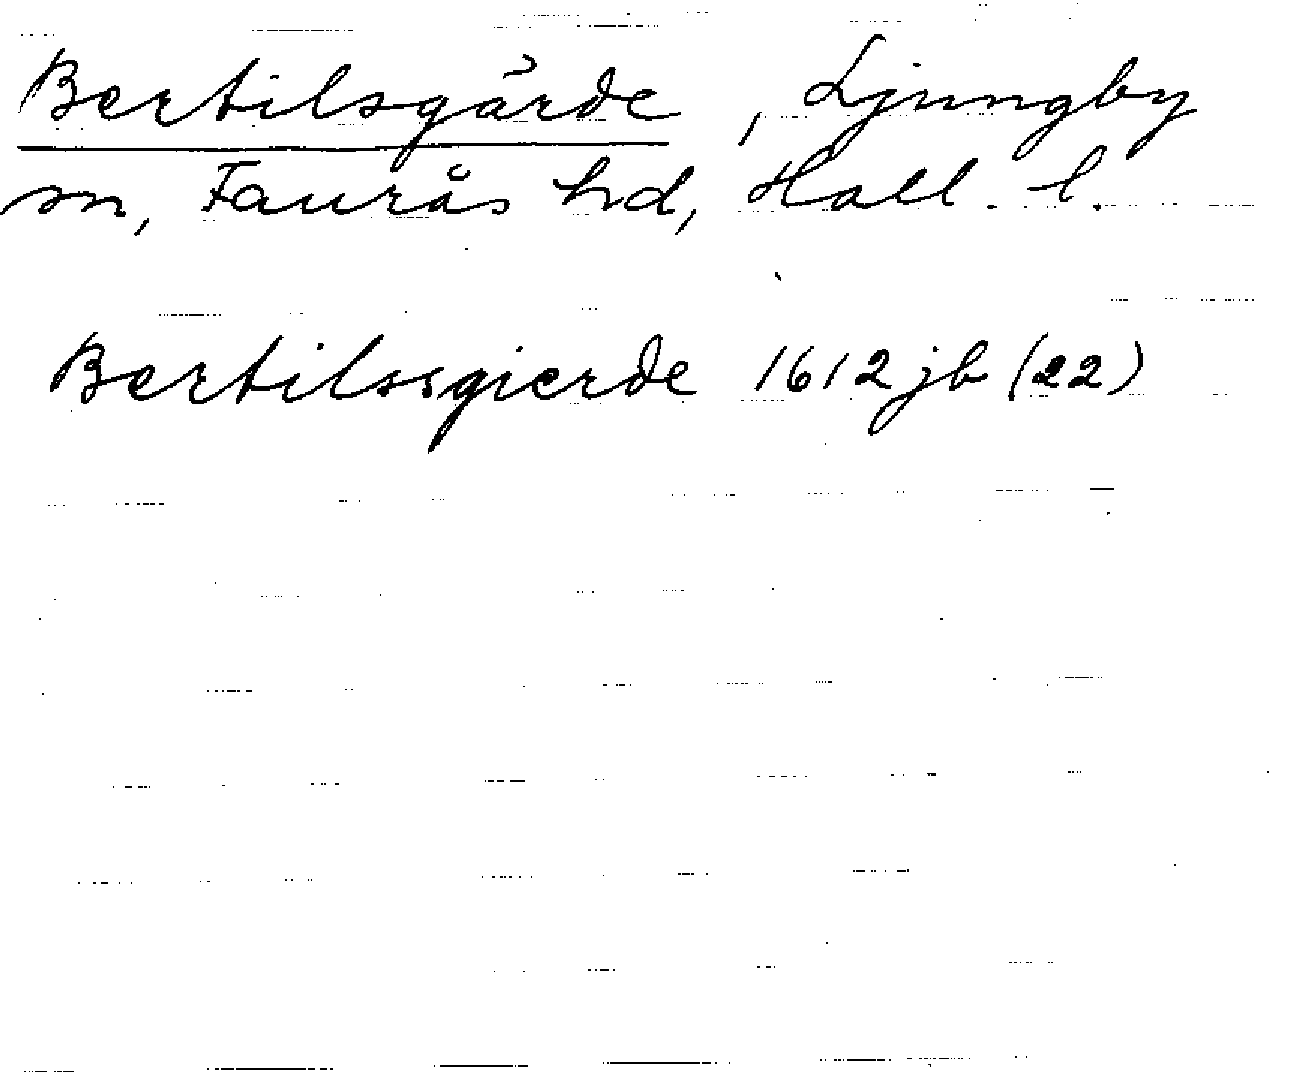 Bertilsgärde, Ljungby
sn, Faurås hd, Hall. l.
Bertilssgierde 1612 jb (22)